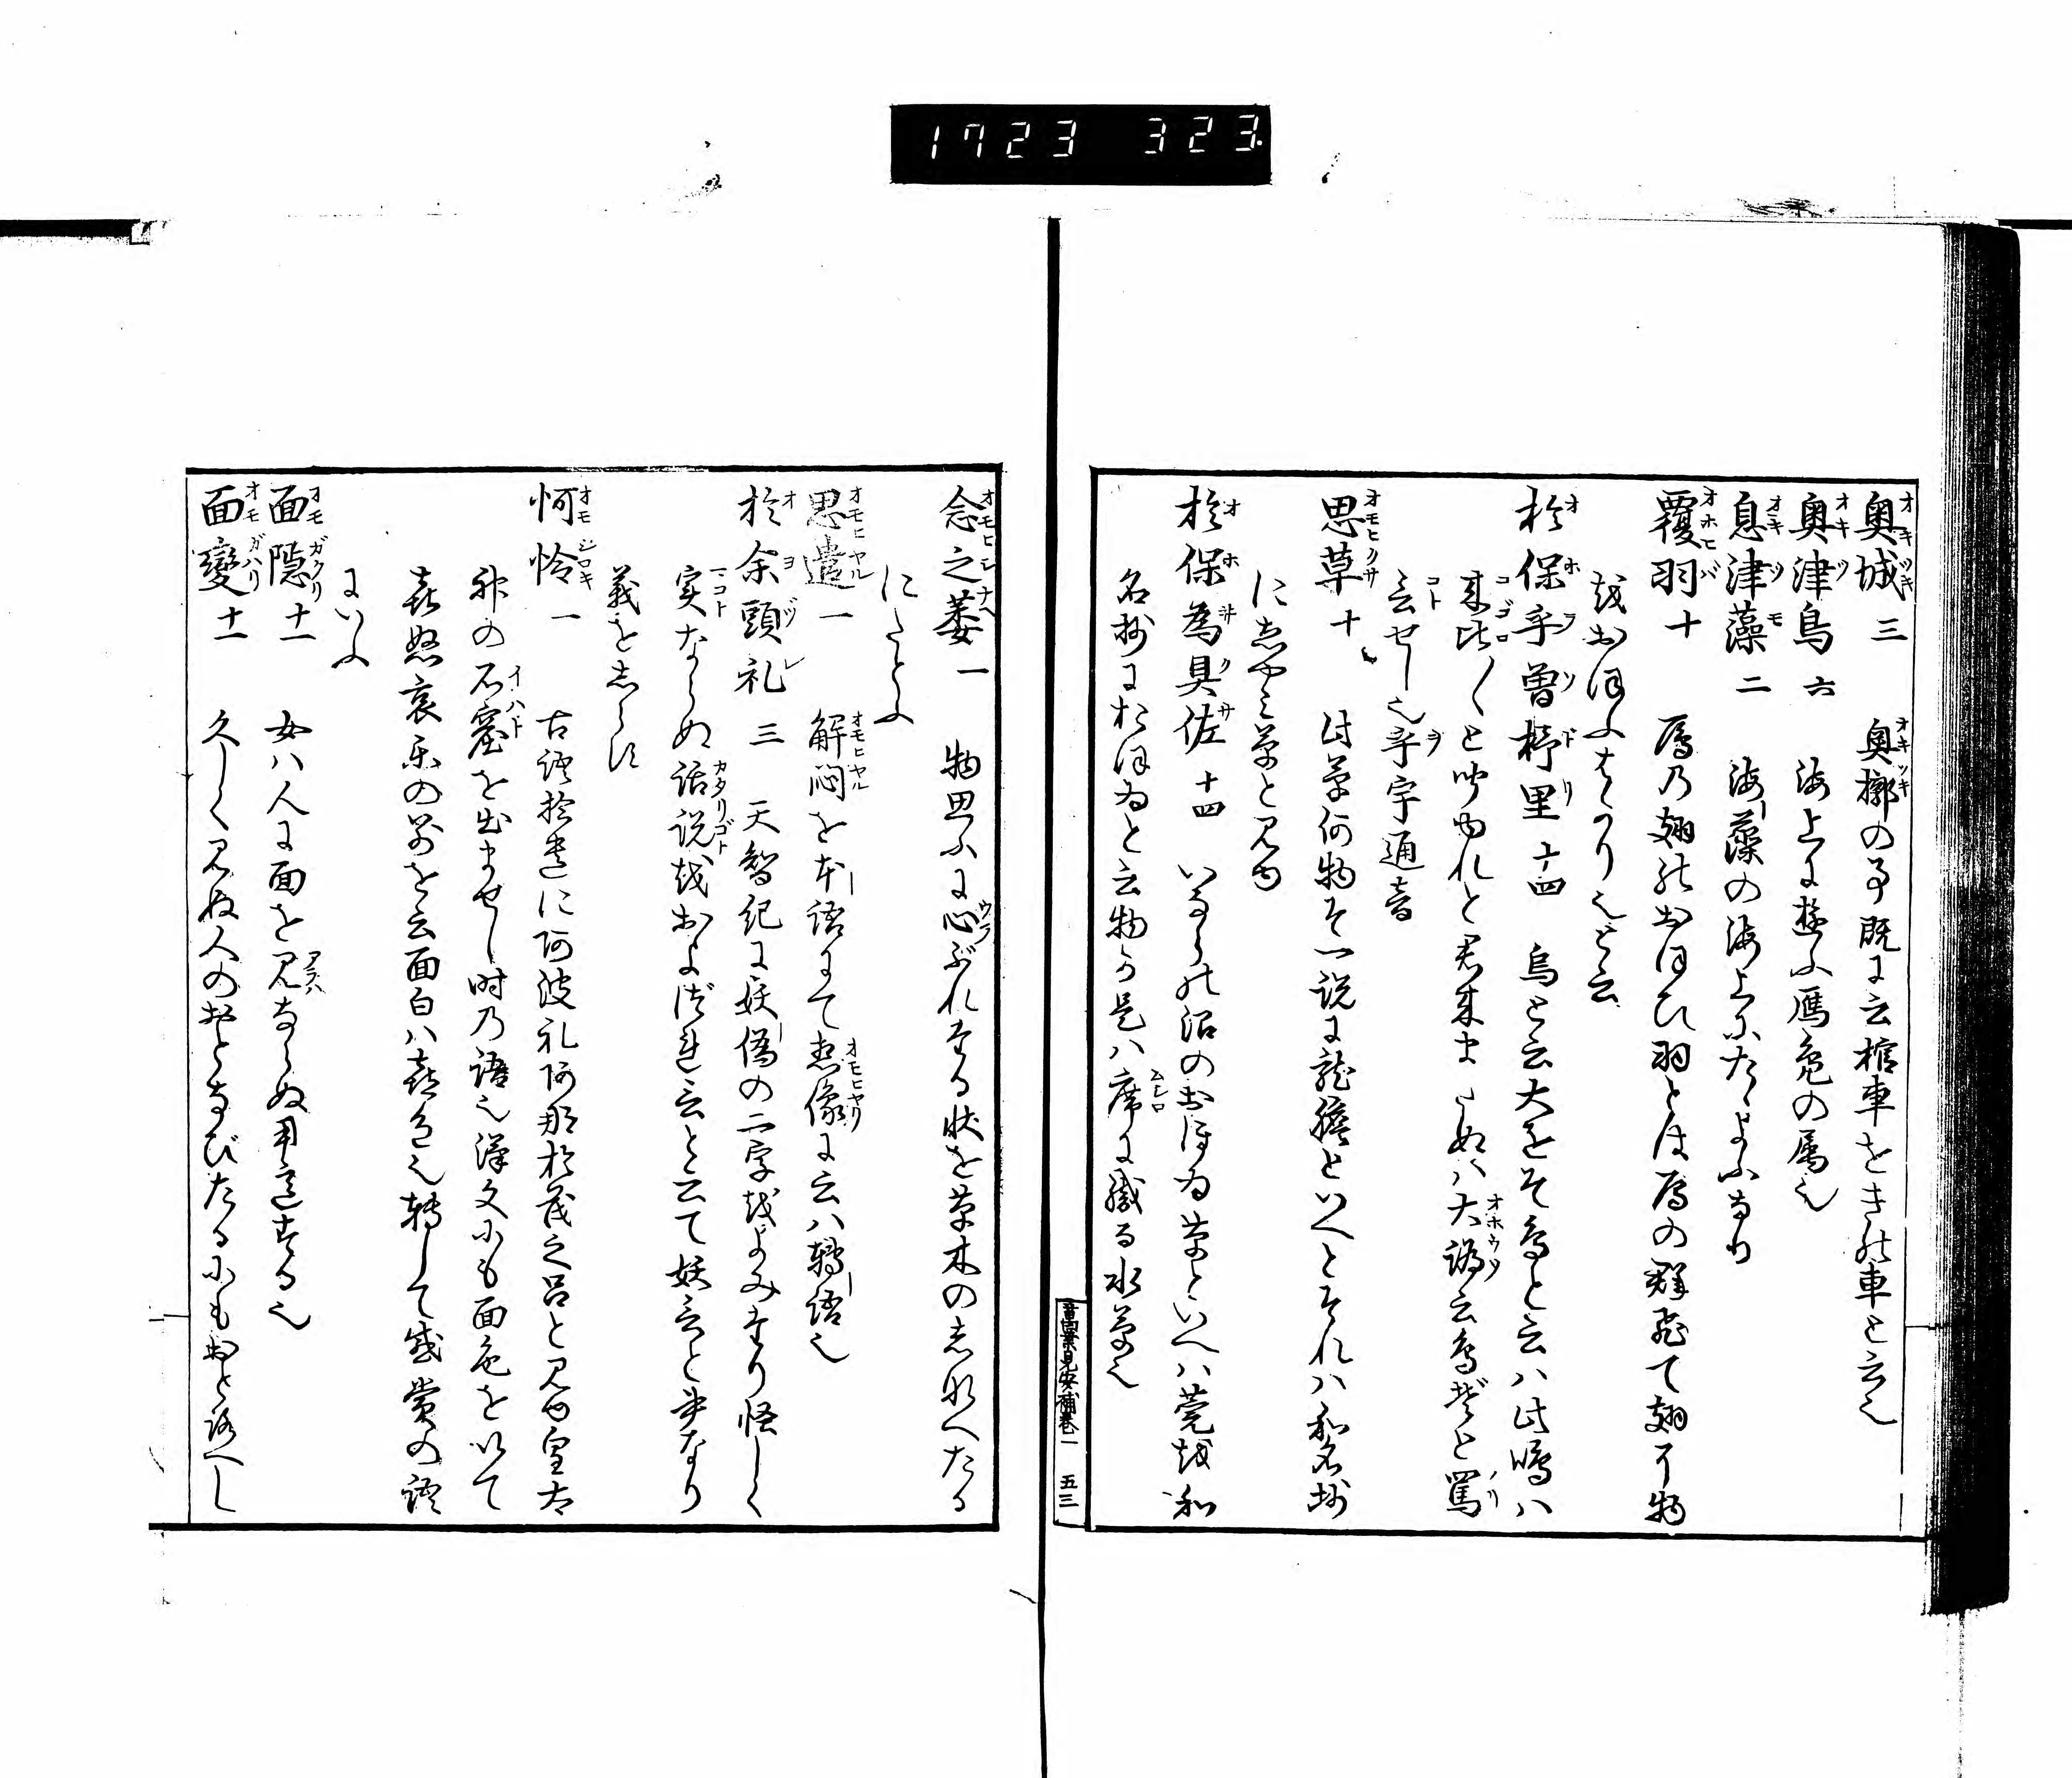 1723 323
奥城 三 奥槨の事既に云棺車をき能車と云也
奥津鳥 六 海上に遊ふ鴈鳧の属也
息津藻 二 海藻の海上にたゝよふなり
覆羽 十 鳫乃翅能おほひ羽とは鳫の群飛て翅て物
越おほふはかり也と云
於保乎曽杼里 十四 烏と云大をそ鳥と云ハ此鳴ハ
来比〳〵と聞ゆれと君来まさぬハ大譌云鳥ぞと罵
言せし也乎宇通音
思草 十 此草何物そ一説に龍膽といへとそれハ和名抄
に志やみ草と見ゆ
於保為具佐 十四 いならの沼のおほゐ草といへハ莞越和
名抄におほゐと云物か是ハ席に織る水草也
萬葉見安補巻一 五三
念之萎 一 物思ふに心ぶれたる状を草木の志なへたる
にたとふ
思遣 一 解悶を本語にて想像に云ハ轉語也
於余頭礼 三 天智紀に妖偽の二字越よみたり怪しく
実ならぬ話説越およづれ言と云て妖言と書なり
義を志らす
怜 一 古語拾遺に阿波礼阿那於茂之呂と見ゆ皇太
神の石窟を出ませし時乃語也漢文にも面色を以て
喜怒哀楽の別を云面白ハ喜色也轉して感賞の語
にいふ
面隠 十一 女ハ人に面を見ならぬ用意する也
面變 十一 久しく見ぬ人のおとなびたるにもおとろへし